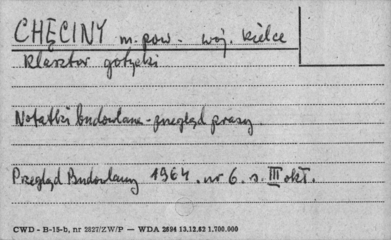 CHĘCINY m. pow. woj. Kielce
Klasztor gotycki
Notatki budowlane - przegląd prasy.
Przegląd Budowlany 1964. nr 6. s. III okł.
CWD - B-15-b, nr 2827/ZW/P — WDA 2694 13.12.62 1.700.000